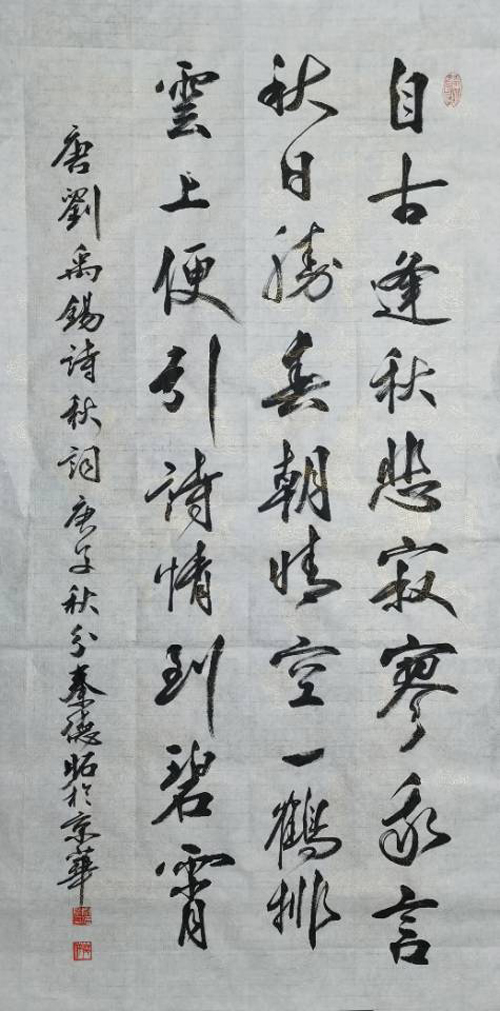 自古逢秋悲寂寥我言
秋日勝春朝晴空一鶴排
雲上便引詩情到碧霄
唐劉禹錫詩秋詞庚子秋分秦德昭於京華